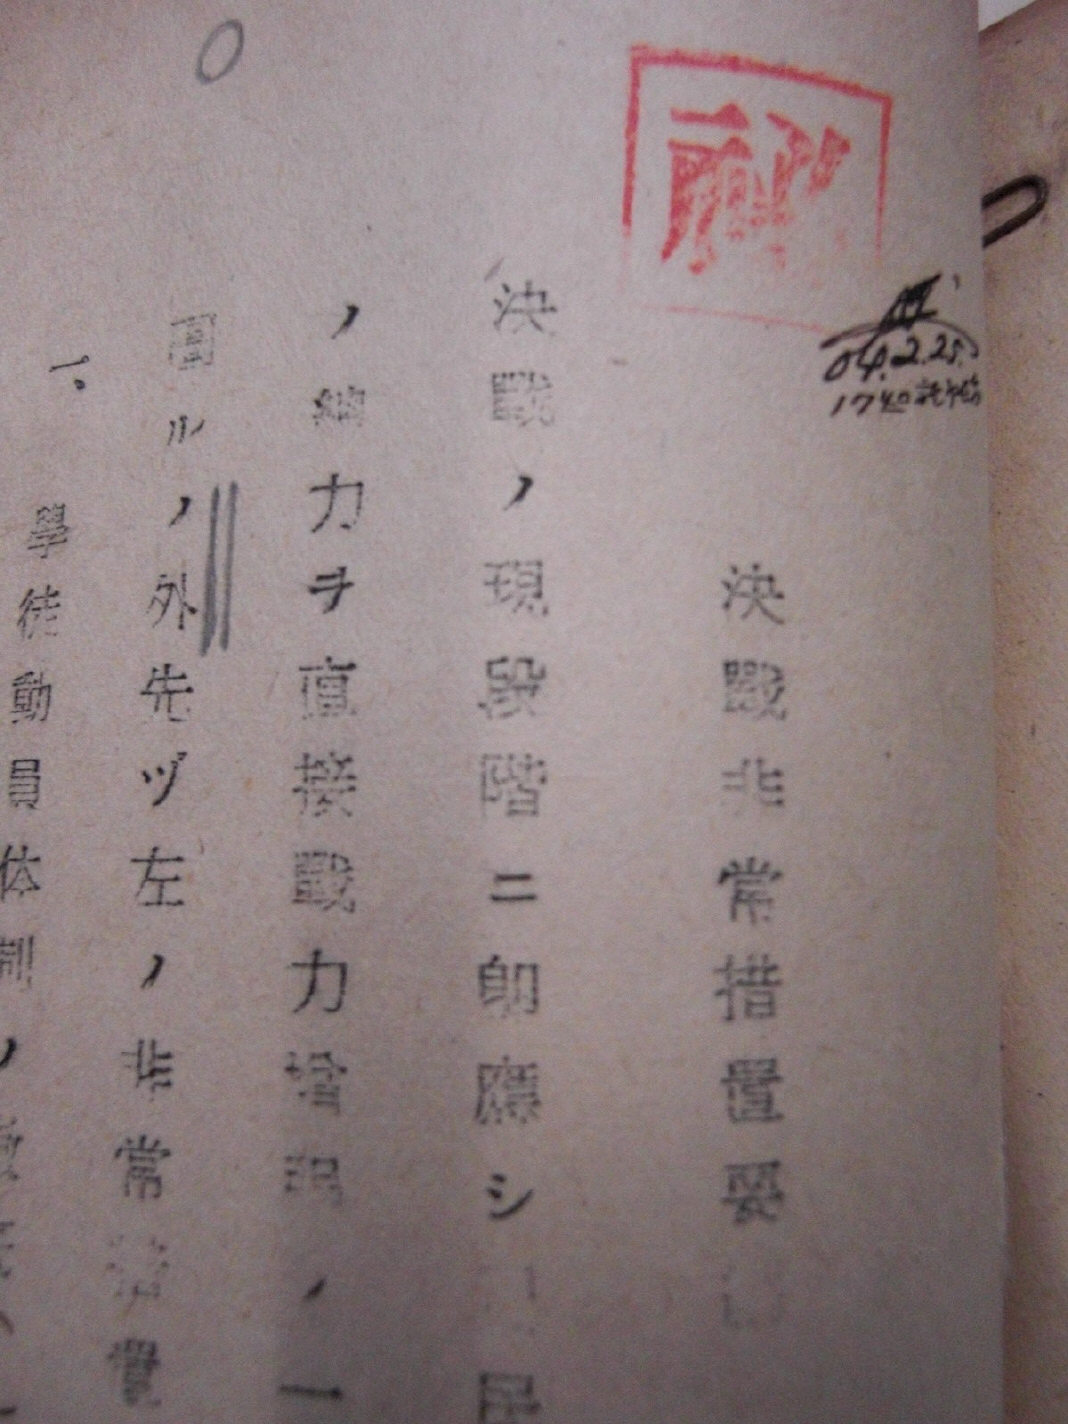 決戰非常措置要
04.2.25.
1740
決戰ノ現段階ニ即應シ
ノ總力ヲ直接戰力増强ノ一
圖ルノ外先ヅ左ノ非常措置
一。
學徒動員体制ノ